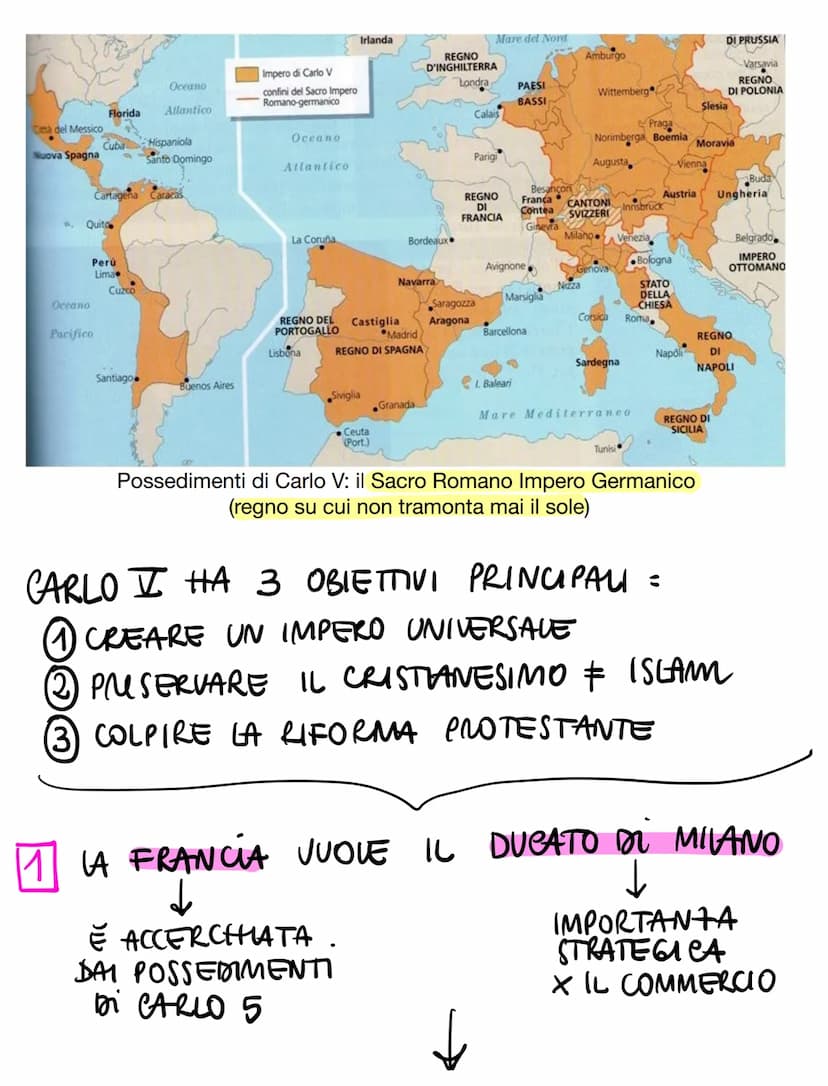 Irlanda
Mare del Nord
DI PRUSSIA
REGNO
D'INGHILTERRA
Londra
Amburgo
Varsavia
REGNO
DI POLONIA
Impero di Carlo V
confini del Sacro Impero
Romano-germanico
PAESI
BASSI
Wittemberg
Slesia
Calais
Praga
Norimberga
Boemia
Moravia
Parigi
Augusta
Vienna
Buda
Oceano
Atlantico
Florida
Città del Messico
Cuba
Hispaniola
Nuova Spagna
Santo Domingo
Oceano
Atlantico
Cartagena
Caracas
Quito
REGNO
DI
FRANCIA
Besançon
Franca
Contea
CANTONI
SVIZZERI
Innsbruck
Austria
Ungheria
Ginevra
Milano
Venezia
Belgrado
La Coruña
Bordeaux
Genova
Bologna
IMPERO
OTTOMANO
Perù
Lima
Cuzco
Avignone
Nizza
Marsiglia
STATO
DELLA
CHIESA
Navarra
Saragozza
Corsica
Roma
Oceano
Pacifico
REGNO DEL
PORTOGALLO
Castiglia
Aragona
Madrid
Barcellona
REGNO
DI
NAPOLI
Lisbona
REGNO DI SPAGNA
Napoli
Sardegna
Santiago
Buenos Aires
I. Baleari
Siviglia
Granada
Mare Mediterraneo
REGNO DI
SICILIA
Ceuta
(Port.)
Tunisi
Possedimenti di Carlo V: il Sacro Romano Impero Germanico
(regno su cui non tramonta mai il sole)
CARLO V HA 3 OBIETTIVI PRINCIPALI =
1 CREARE UN IMPERO UNIVERSALE
2 PRESERVARE IL CRISTIANESIMO ≠ ISLAM
3 COLPIRE LA RIFORMA PROTESTANTE
1 LA FRANCIA VUOLE IL DUCATO DI MILANO
È ACCERCHIATA
DAI POSSEDIMENTI
DI CARLO 5
IMPORTANZA
STRATEGICA
X IL COMMERCIO